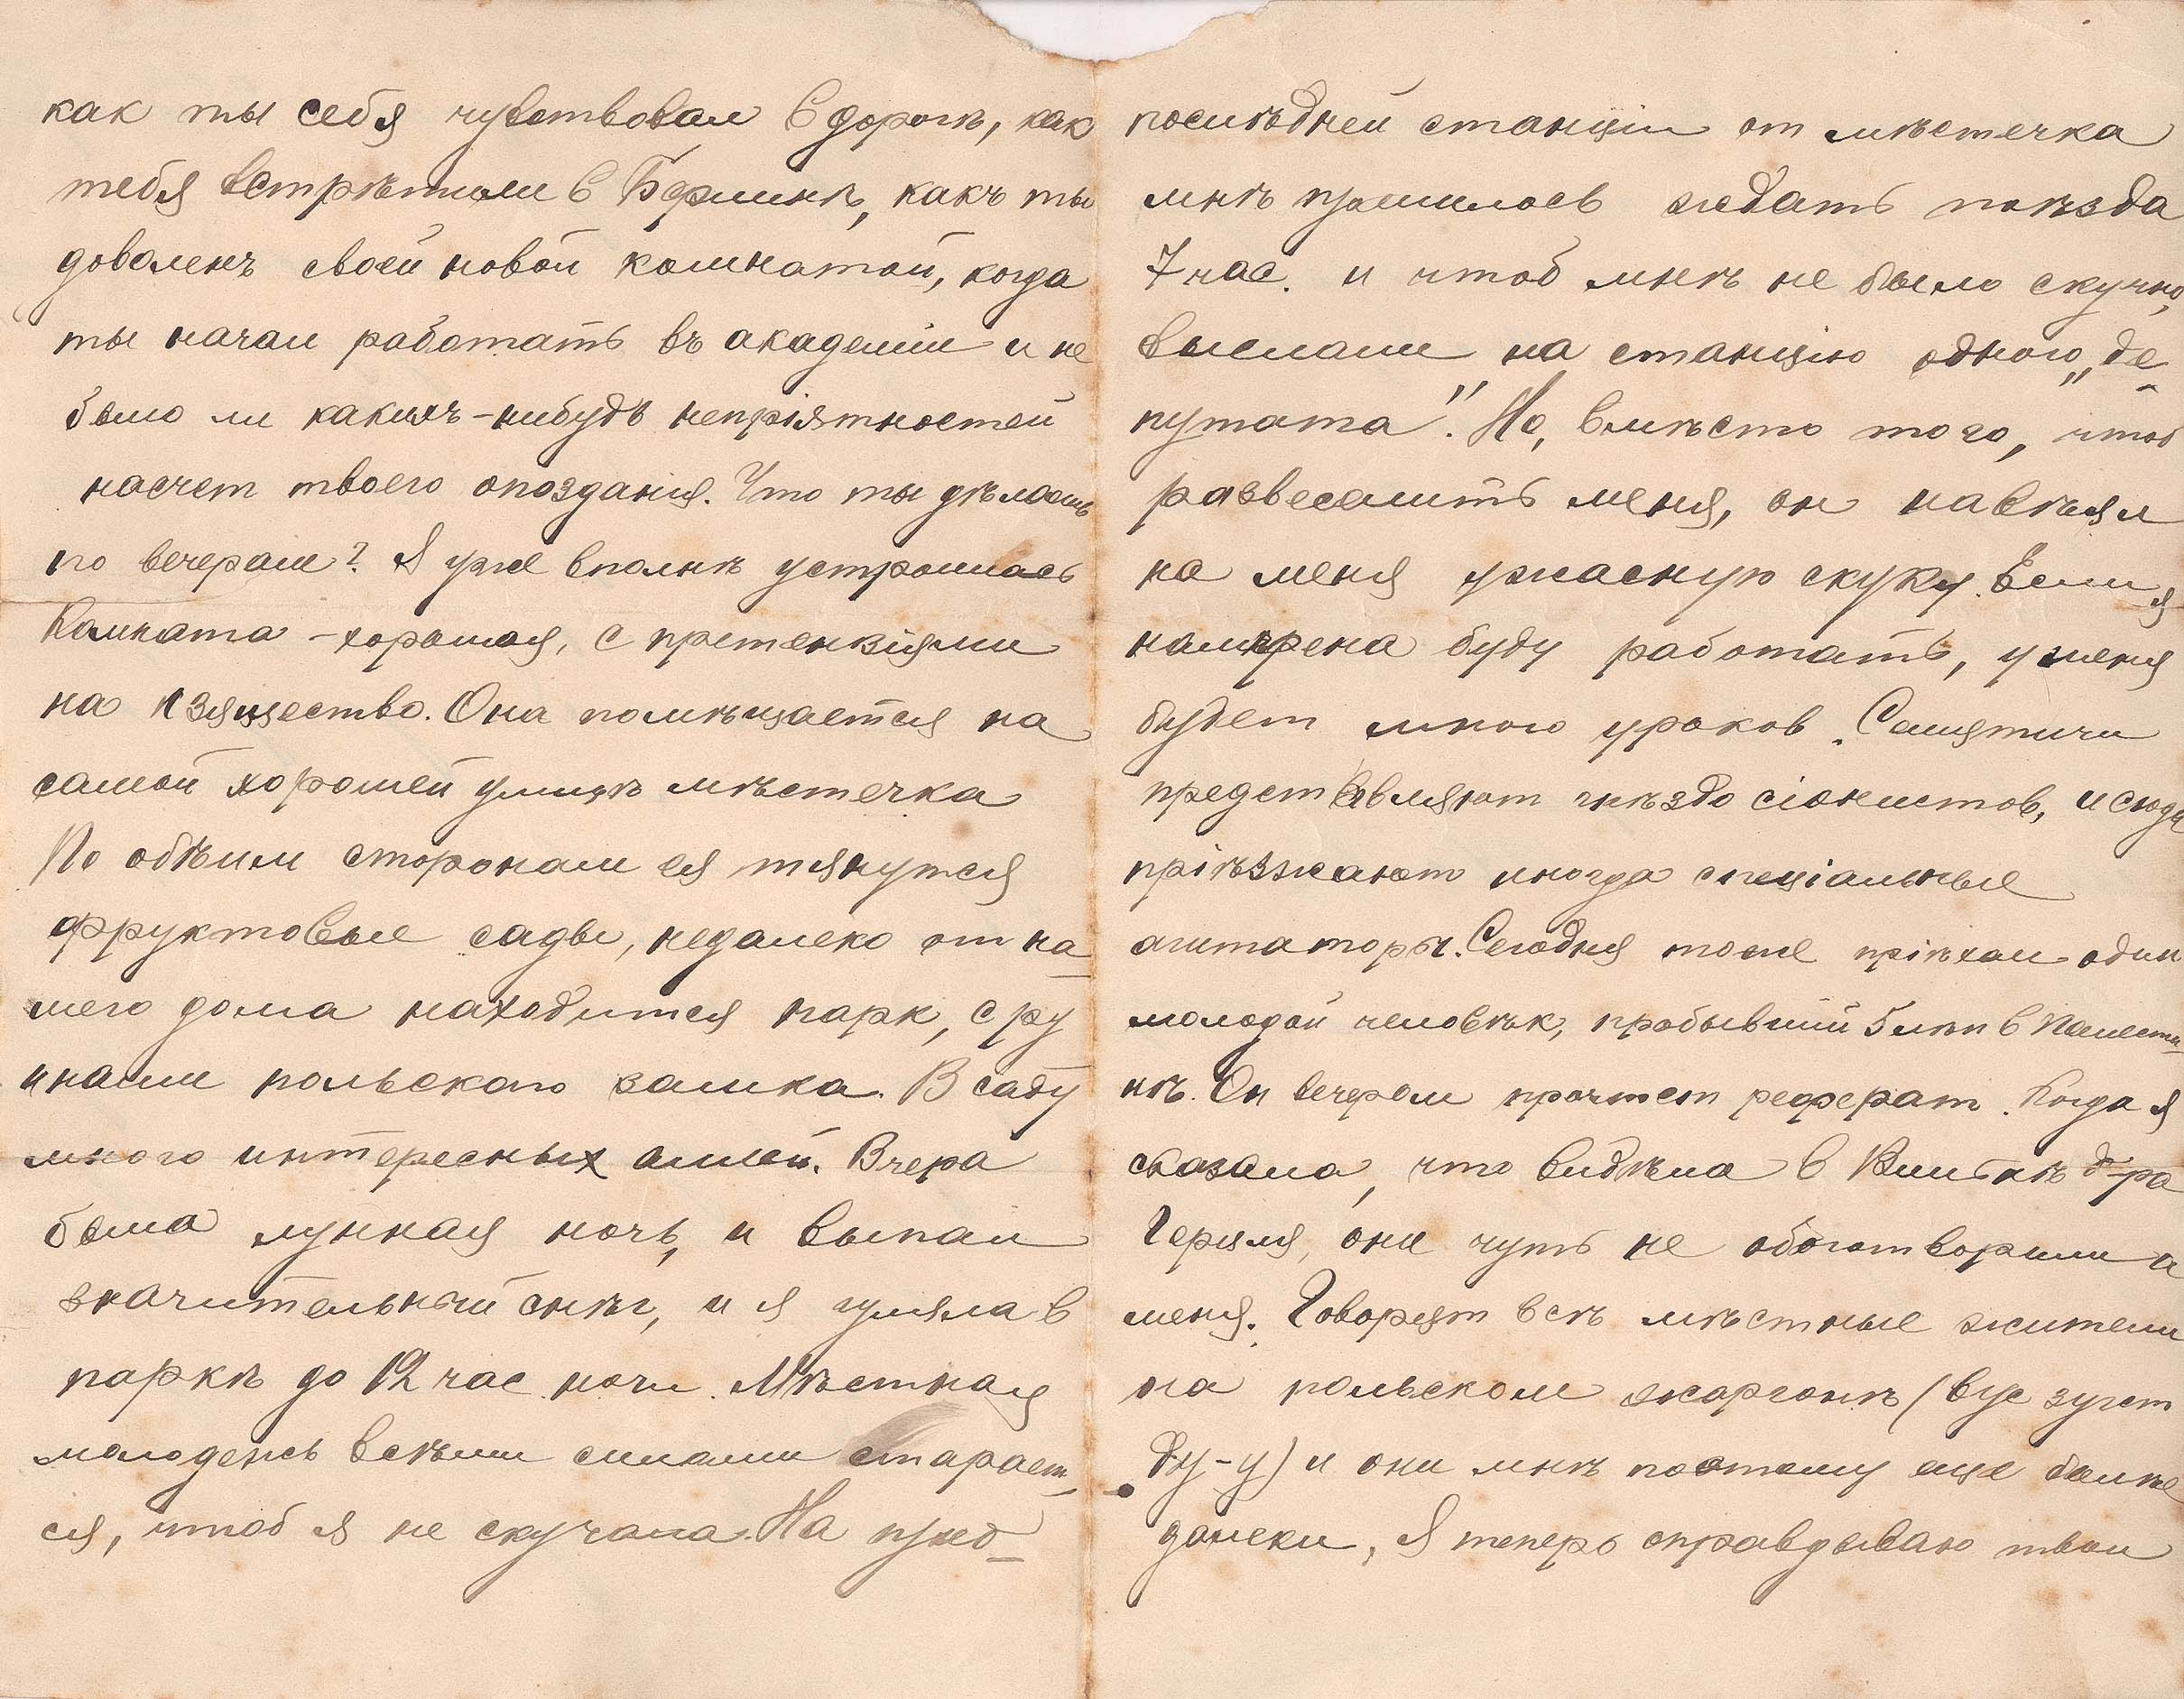 как ты себя чувствовал в дорогѣ, как
тебя встрѣтили в Берлинѣ, какъ ты
доволенъ своей новой комнатой, когда
ты начал работать въ академіи и не
было ли какихъ-нибудь непріятностей
насчет твоего опозданія. Что ты дѣлаешь
по вечерам? Я уже вполнѣ устроилась
Комната – хорошая, с претензіями
на изящество. Она помѣщается на
самой хорошей улицѣ мѣстечка
По обѣим сторонам ея тянутся
фруктовые сады, недалеко от на-
шего дома находится парк, с ру
инами польскаго замка. В саду
много интересных аллей. Вчера
была лунная ночь, и выпал
значительный снѣг, и я гуляла в
паркѣ до 12 час. ночи. Мѣстная
молодежь всѣми силами старает-
ся, чтоб я не скучала. На пред-
послѣдней станціи от мѣстечка
мнѣ пришлось ждать поѣзда
7 час. и чтоб мнѣ не было скучно,
выслали на станцію одного „де-
путата". Но, вмѣсто того, чтоб
развеселить меня, он навѣял
на меня ужасную скуку. Если я
намѣрена буду работать, у меня
будет много уроков. Семятичи
представляют гнѣздо сіонистов, и сюда
пріѣзжают иногда спеціальные
агитаторы. Сегодня тоже пріѣхал один
молодой человѣк, пробывшій 5 лѣт в Палести-
нѣ. Он вечером прочтет реферат. Когда я
сказала, что видѣла в Вильнѣ д-ра
Герцля, они чуть не обоготворили
меня. Говорят всѣ мѣстные жители
на польском жаргонѣ (вус зугст
ду-у) и они мнѣ поэтому еще болѣе
далеки, Я теперь оправдываю твои